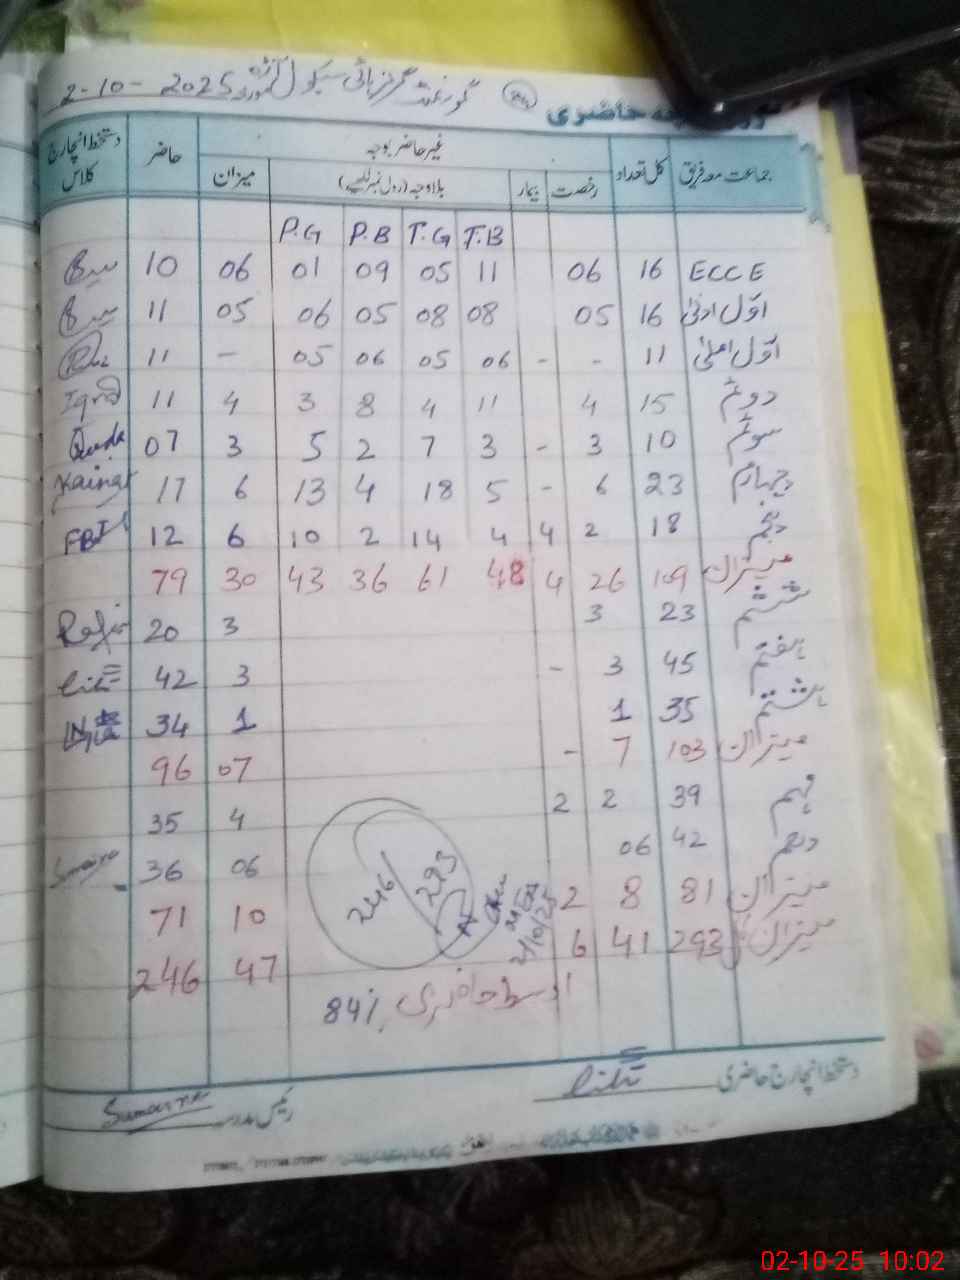 گورنمنٹ گرلز ہائی سکول 2-10-2025
حاضری
جماعت معہ فریق کل تعداد غیر حاضر بوجہ حاضر دستخط انچارج کلاس
رخصت بیمار بلاوجہ (رول نمبر لکھیے) میزان
T.B T.G P.B P.G
ECCE 16 06 11 05 09 01 06 10
اوّل ادنیٰ 16 05 08 08 05 06 05 11
اوّل اعلیٰ 11 - - 06 05 06 05 - 11
دوئم 15 4 11 4 8 3 4 11 Iqra
سوئم 10 3 - 3 7 2 5 3 07
چہارم 23 6 - 5 18 4 13 6 17 Kainat
پنجم 18 2 4 4 14 2 10 6 12
میزان 109 26 4 48 61 36 43 30 79
ششم 23 3 3 20
ہفتم 45 3 - 3 42
ہشتم 35 1 1 34
میزان 103 7 - 07 96
نہم 39 2 2 4 35
دہم 42 06 06 36
میزان 81 8 2 10 71
میزان 293 41 6 47 246
246/293
2/10/25
اوسط حاضری 84%
دستخط انچارج حاضری
رئیس مدرسہ
02-10-25 10:02